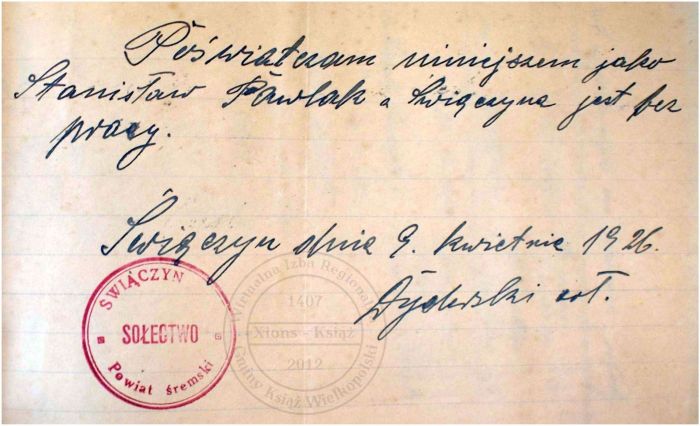 Poświatczam niniejszem jako
Stanisław Pawlak z Świączyna jest bez
pracy.
Świączyn dnia 9. kwietnia 1926.
Dyderski soł.
ŚWIĄCZYN
SOŁECTWO
Powiat śremski
Wirtualna Izba Regionalna
1407
Xions - Książ
2012
Gminy Książ Wielkopolski